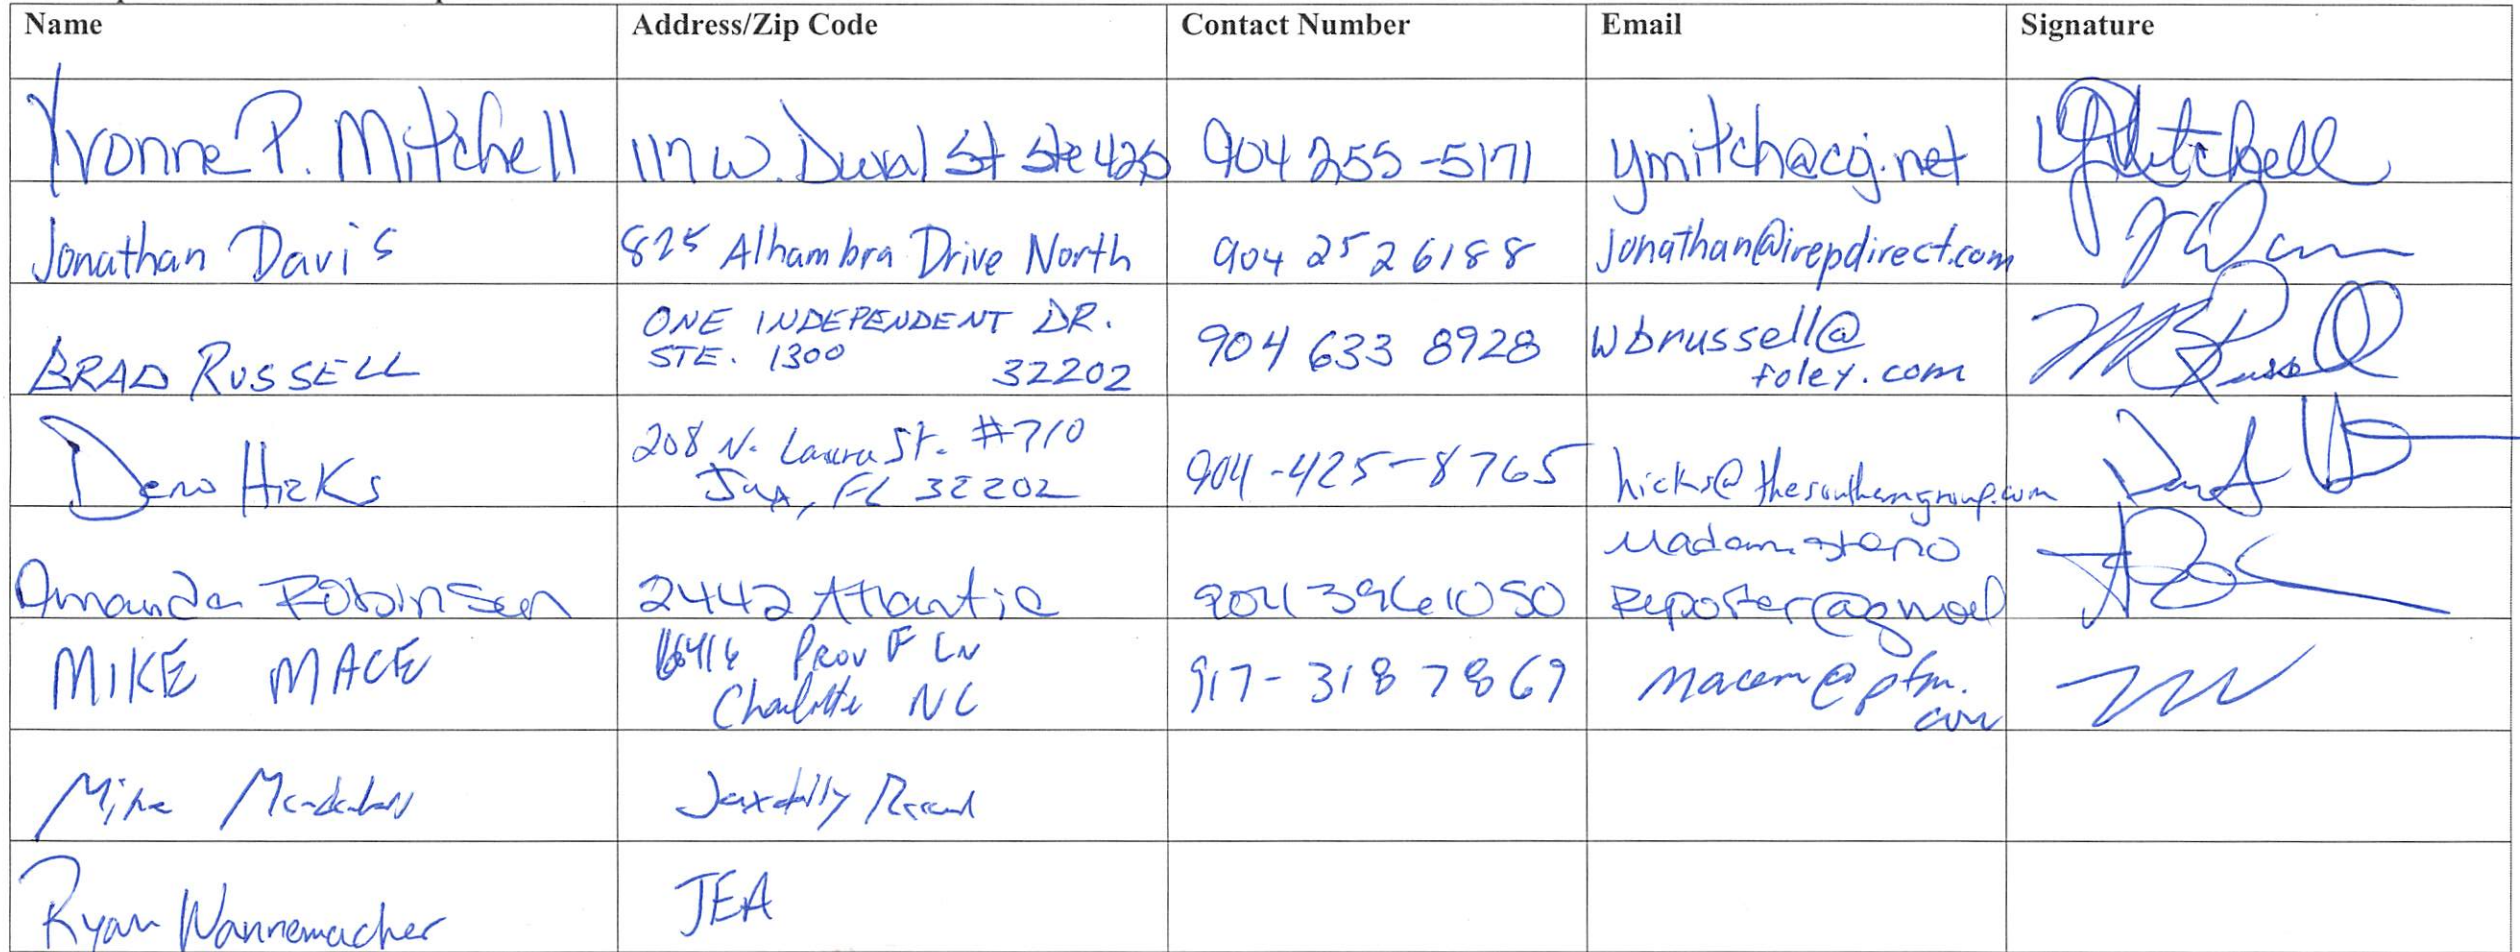 Name Address/Zip Code Contact Number Email Signature
Yvonne P. Mitchell 117 W. Duval St Ste 425 904 255-5171 ymitch@coj.net YMitchell
Jonathan Davis 825 Alhambra Drive North 904 252 6188 jonathan@irepdirect.com
BRAD RUSSELL ONE INDEPENDENT DR.
STE. 1300 32202 904 633 8928 wbrussell@
foley.com
Deno Hicks 208 N. Laura St. #710
Jax, FL 32202 904-425-8765 hicks@thesoutherngroup.com
Amanda Robinson 2442 Atlantic 904 396 1050 Madam.steno
reporter@gmail
MIKE MACE Prov F LN
Charlotte NC 917-318 7869 macem@pfm.
com
Mike Jaxdaily Record
Ryan Wannemacher JEA